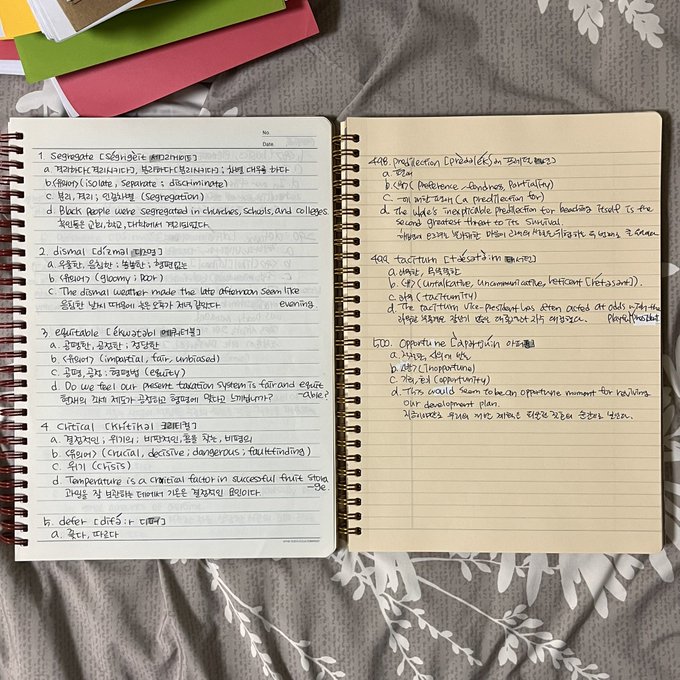 No.
Date.
1. segregate [ségrigèit 세그리게이트]
a. 격리하다(격리시키다), 분리하다(분리시키다) ; 차별 대우를 하다
b. <유의어> (isolate, separate ; discriminate)
c. 분리, 격리 ; 인종차별 (segregation)
d. Black people were segregated in churches, schools, and colleges
흑인들은 교회, 학교, 대학에서 격리되었다.
2. dismal [dízməl 디즈멀]
a. 우울한, 음침한 ;
b. <유의어> (gloomy ; poor)
c. The dismal weather made the late afternoon seem like
evening.
음침한 날씨 때문에 늦은 오후가 저녁 같았다.
3. equitable [ékwətəbl 에쿼터블]
a. 공평한, 공정한 ; 정당한
b. <유의어> (impartial, fair, unbiased)
c. 공평, 공정 ; 형평법 (equity)
d. Do we feel our present taxation system is fair and equit
-able?
현재의 조세 제도가 공정하고 형평에 맞다고 느끼십니까?
4. critical [krítikəl 크리티컬]
a. 결정적인 ; 위기의 ; 비판적인, 흠을 잡는, 비평의
b. <유의어> (crucial, decisive ; dangerous ; faultfinding)
c. 위기 (crisis)
d. Temperature is a critical factor in successful fruit stora
-ge.
과일을 잘 보관하는 데에서 기온은 결정적인 요인이다.
5. defer [difə́:r 디퍼]
a. 늦다, 따르다
498. predilection
a. 편애
b. (preference, fondness, partiality)
c. 편애 (a predilection for)
d. The whale's inexplicable predilection for beaching itself is the
second greatest threat to its survival.
499. taciturn
b. (untalkative, uncommunicative, reticent [rétəsənt])
c. (taciturnity)
d. The taciturn vice-president has often acted at odds with the
playful president
500. opportune
b. (inopportune)
c. 기회, 호기 (opportunity)
d. This would seem to be an opportune moment for reviving
our development plan.